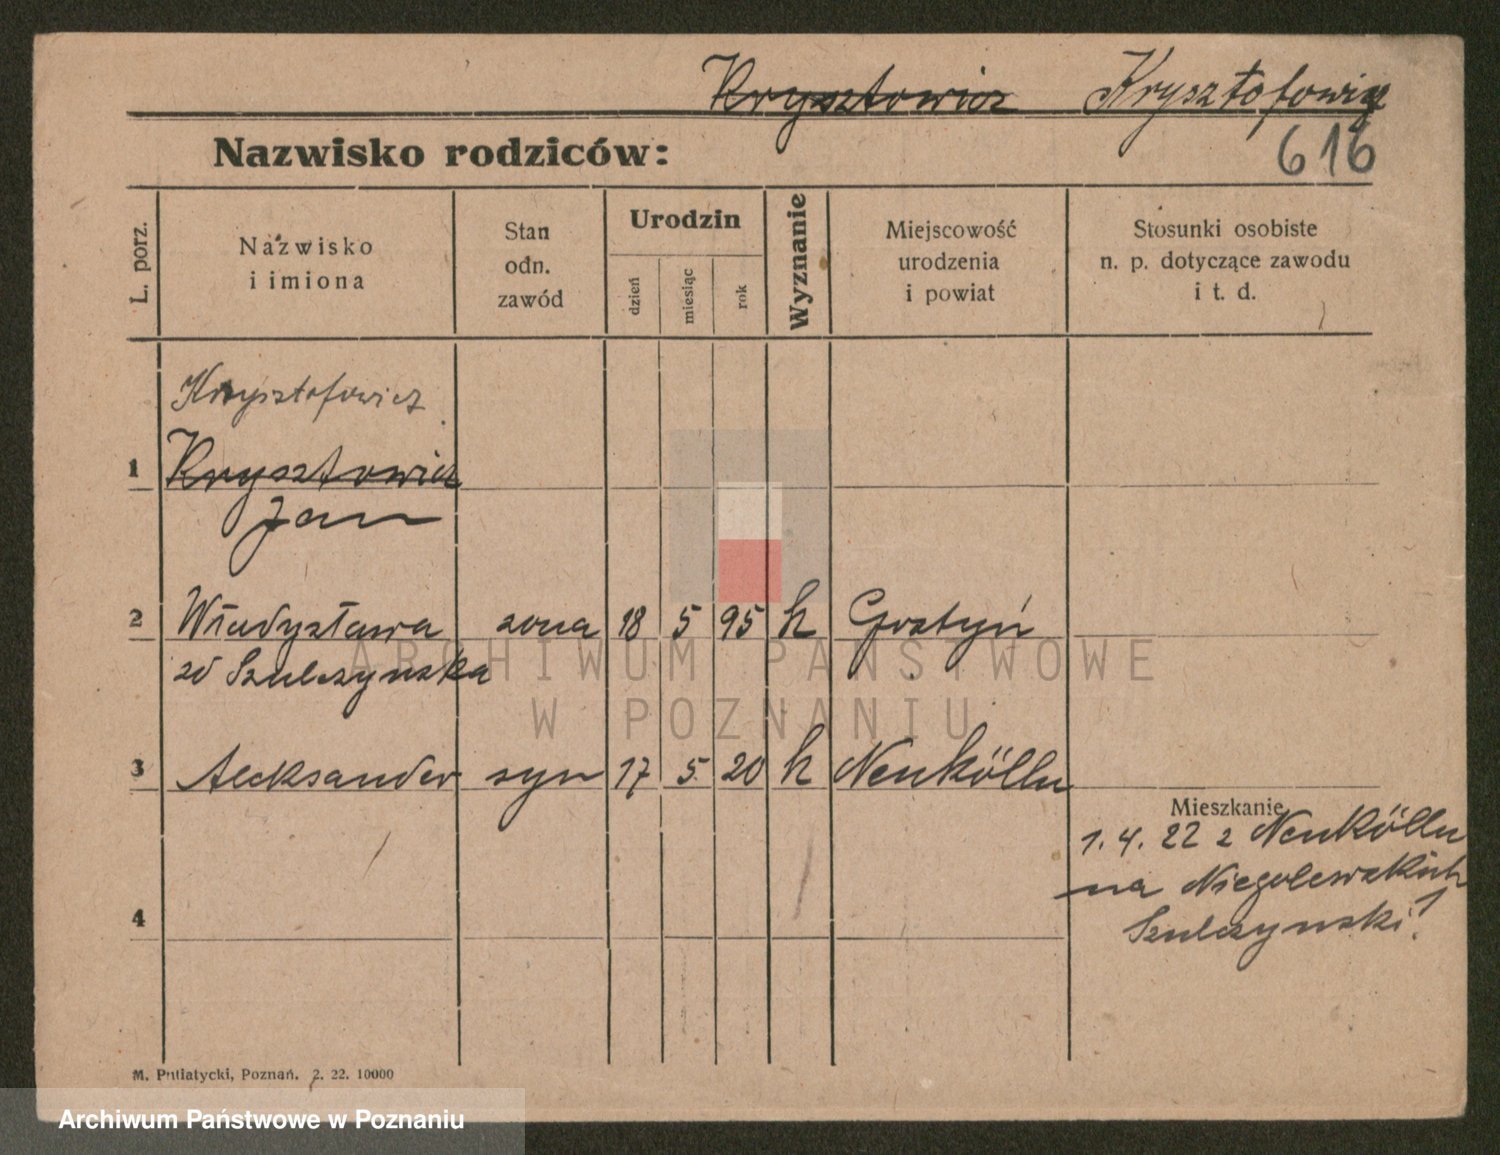 Krysztowicz Krysztofowicz
616
Nazwisko rodziców:
L. porz.
Nazwisko
i imiona
Stan
odn.
zawód
Urodzin
dzień
miesiąc
rok
Wyznanie
Miejscowość
urodzenia
i powiat
Stosunki osobiste
n. p. dotyczące zawodu
i t. d.
Krzysztofowicz
1 Krysztowicz
Jan
2 Władysława żona 18 5 95 k Gostyń
zd Szulczynska
3 Aleksander syn 17 5 20 k Neukölln
Mieszkanie
1. 4. 22 z Neukölln
na Niegolewskich 1
Szulczynski
4
M. Putiatycki, Poznań. 2. 22. 10000
ARCHIWUM PAŃSTWOWE
W POZNANIU
Archiwum Państwowe w Poznaniu